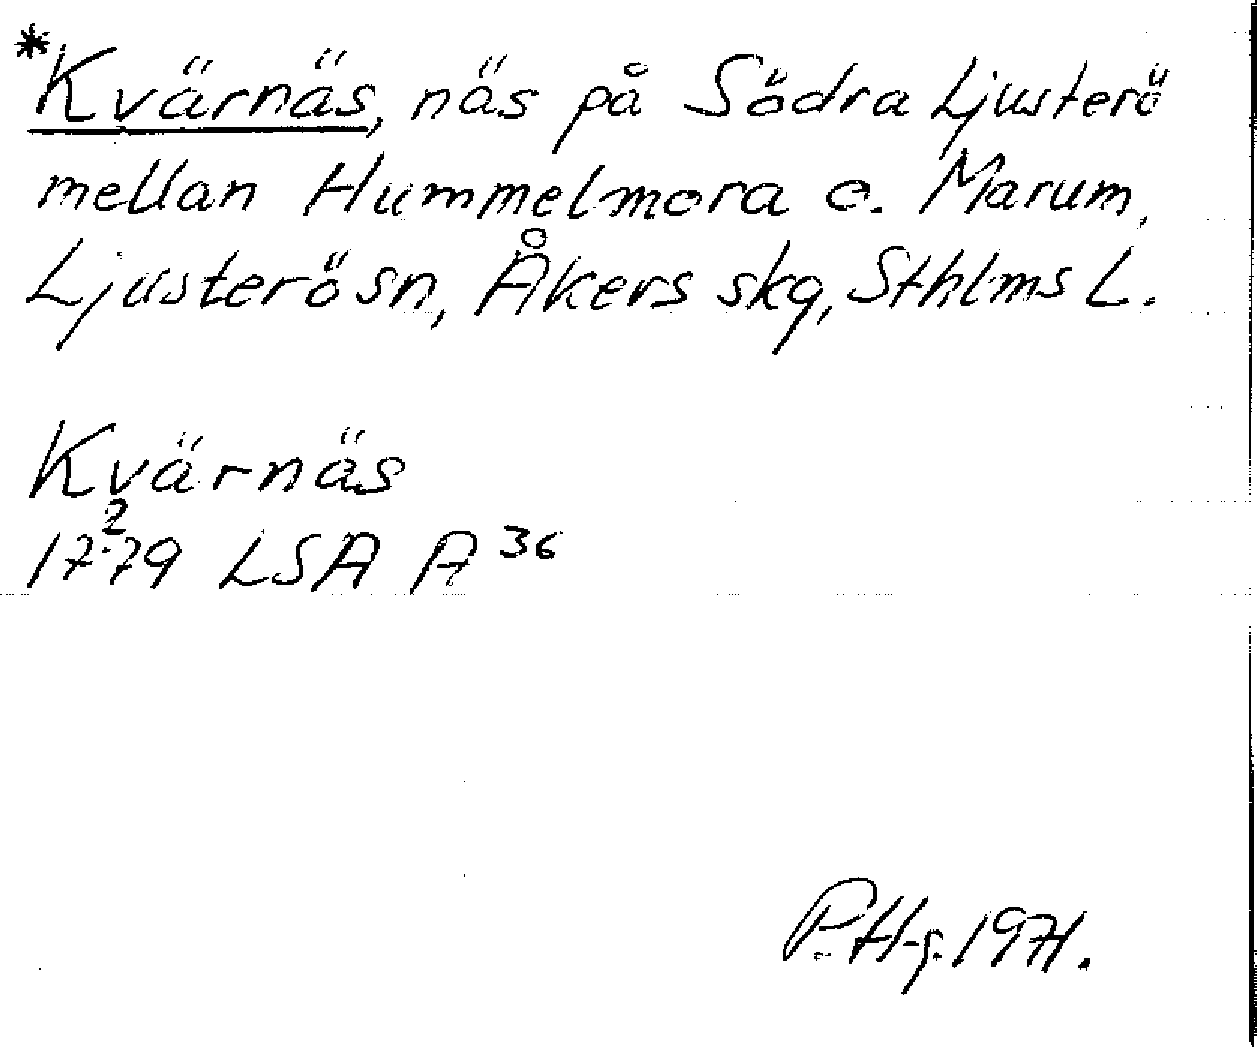 *Kvärnäs, näs på Södra Ljusterö
mellan Hummelmora o. Marum,
Ljusterösn, Åkers skg, Sthlms L.
Kvärnäs
2
1779 LSA A 36
P. H-g. 1971.